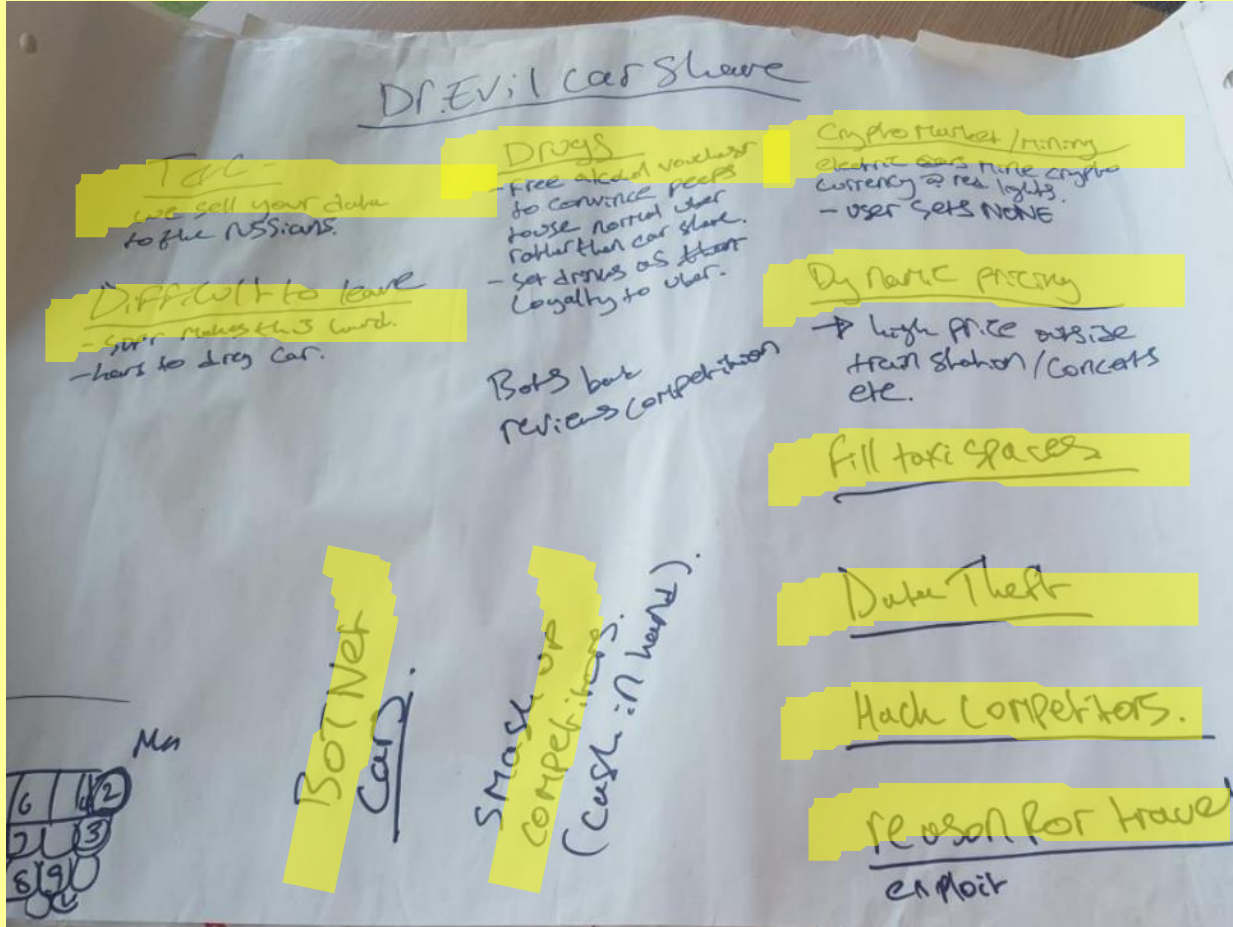 Dr. Evil car share
T&C -
we sell your data
to the russians.
Difficult to leave
- makes this hard.
- to car.
Drugs
- Free alcohol vouchers
to convince peeps
to use normal uber
rather than car share.
- Get drinks as
Loyalty to uber.
Bots bad
reviews competition
Crypto Market / Mining
electric cars mine crypto
currency @ red lights.
- user gets NONE
Dynamic pricing
→ high price outside
train station / concerts
etc.
fill taxi spaces
Data Theft
Hack competitors.
reason for travel
exploit
BOTNet
Cars.
Smash up
competitors.
(cash in hand).
6
2
3
8 9